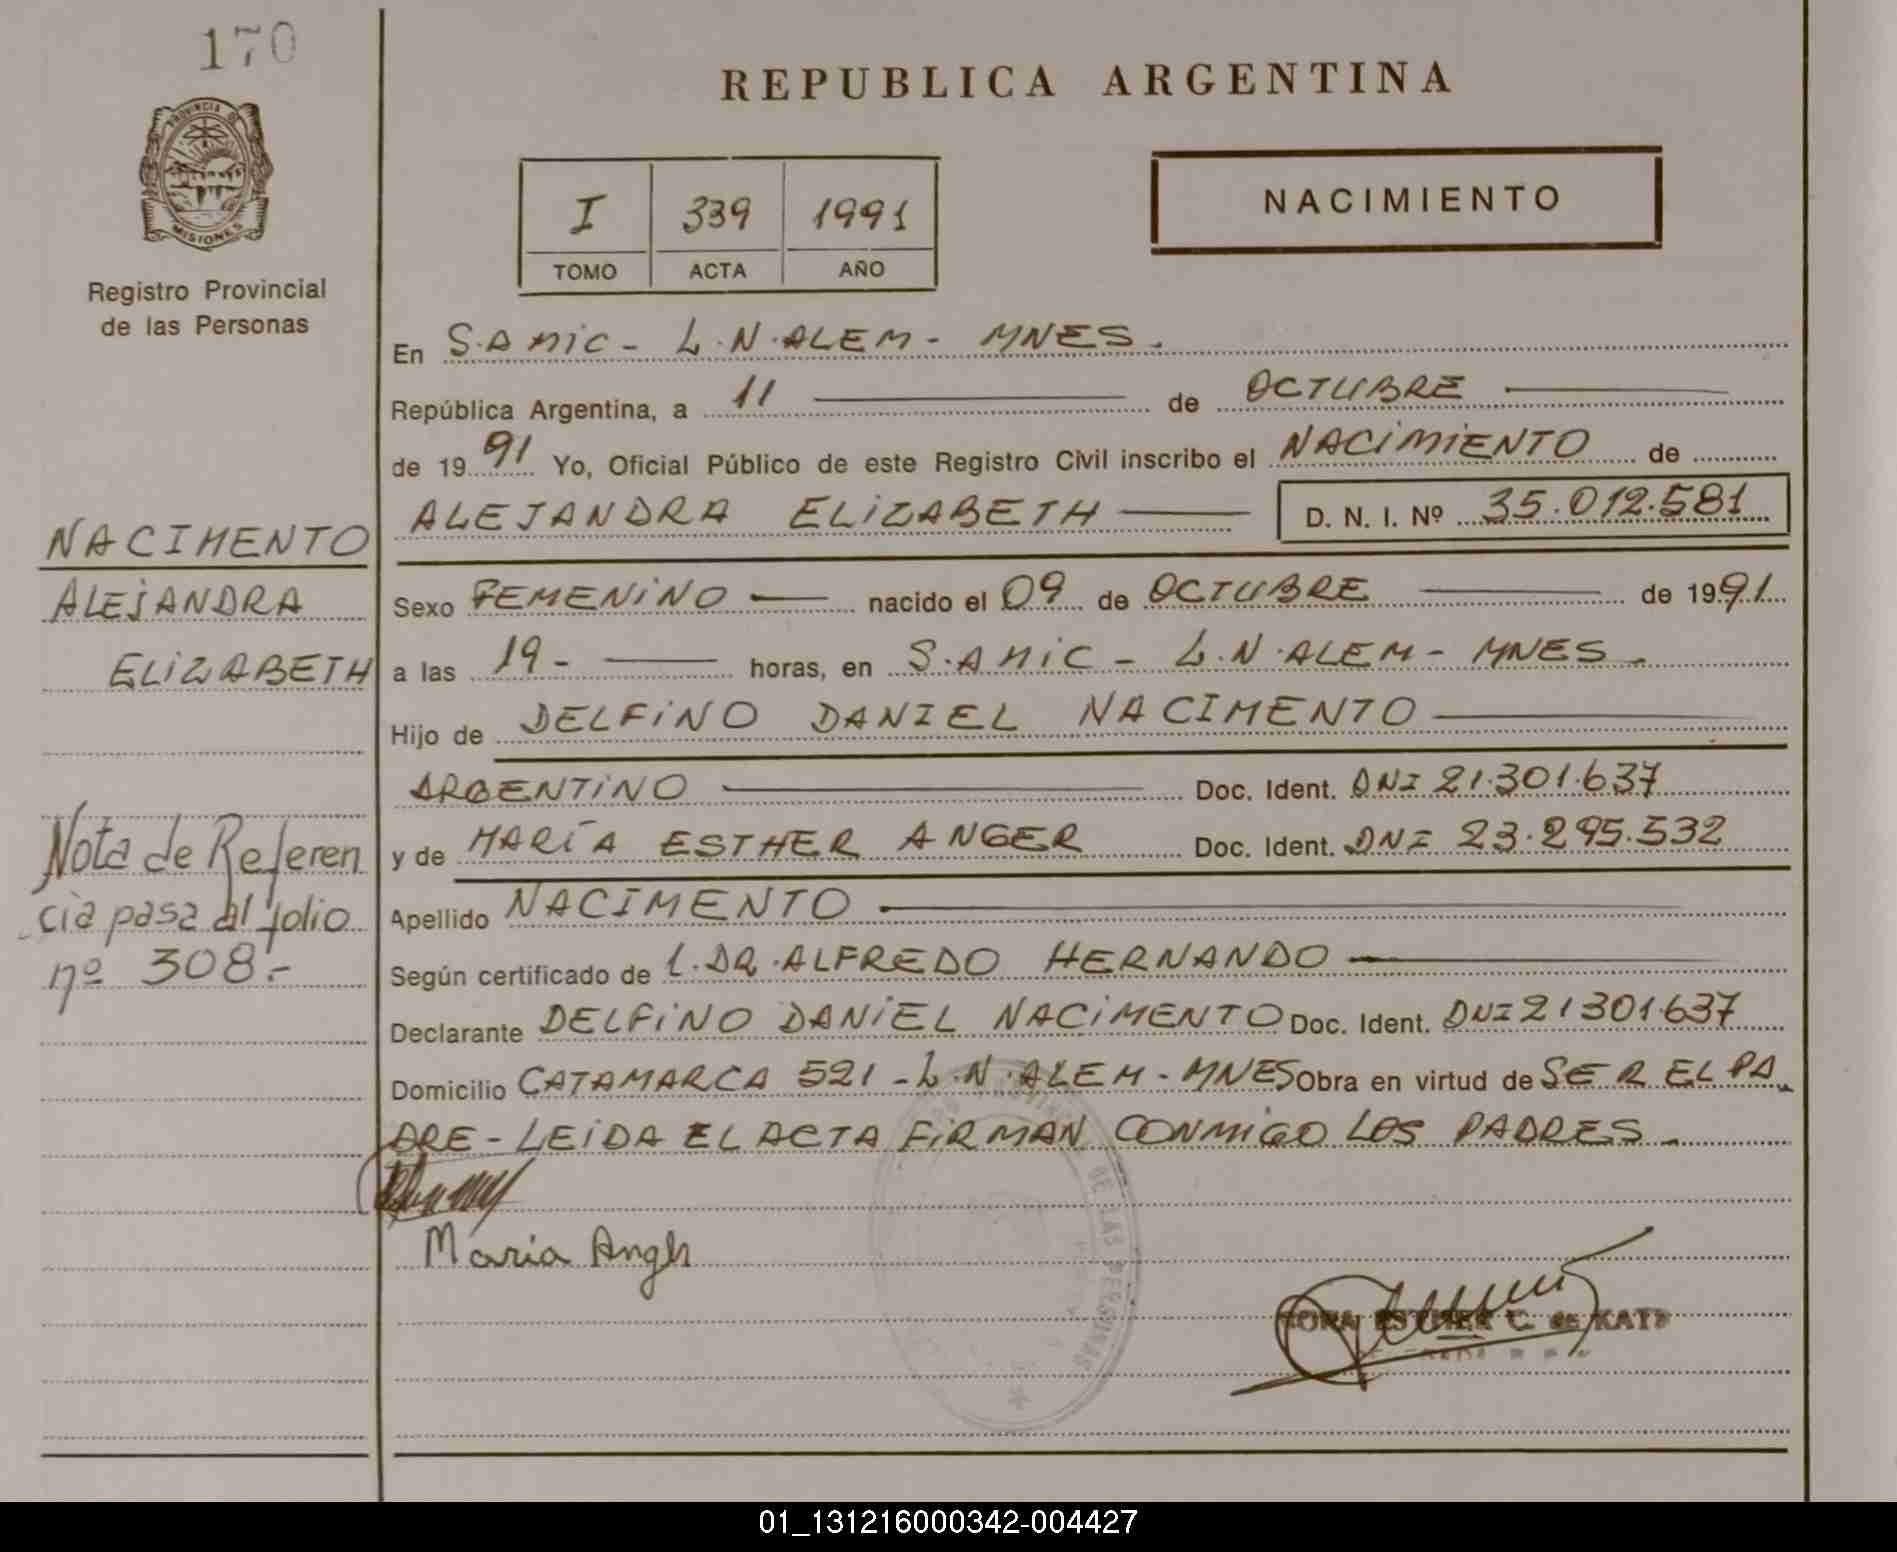 170
PROVINCIA DE
MISIONES
Registro Provincial
de las Personas
REPUBLICA ARGENTINA
I 339 1991
TOMO ACTA AÑO
NACIMIENTO
En S.AMIC - L.N.ALEM - MNES.
República Argentina, a 11 de OCTUBRE
de 1991 Yo, Oficial Público de este Registro Civil inscribo el NACIMIENTO de
ALEJANDRA ELIZABETH D. N. I. Nº 35.012.581
Sexo FEMENINO nacido el 09 de OCTUBRE de 1991
a las 19- horas, en S.AMIC - L.N.ALEM - MNES.
Hijo de DELFINO DANIEL NACIMENTO
ARGENTINO Doc. Ident. DNI 21.301.637
y de MARÍA ESTHER ANGER Doc. Ident. DNI 23.295.532
Apellido NACIMENTO
Según certificado de L.DR.ALFREDO HERNANDO
Declarante DELFINO DANIEL NACIMENTO Doc. Ident. DNI 21301.637
Domicilio CATAMARCA 521 - L.N.ALEM - MNES Obra en virtud de SER EL PA
DRE - LEIDA EL ACTA FIRMAN CONMIGO LOS PADRES -
Maria
DE LAS PERSONAS
ESTHER C. de
NACIMENTO
ALEJANDRA
ELIZABETH
Nota de Referen
cia pasa al folio
nº 308.-
01_131216000342-004427